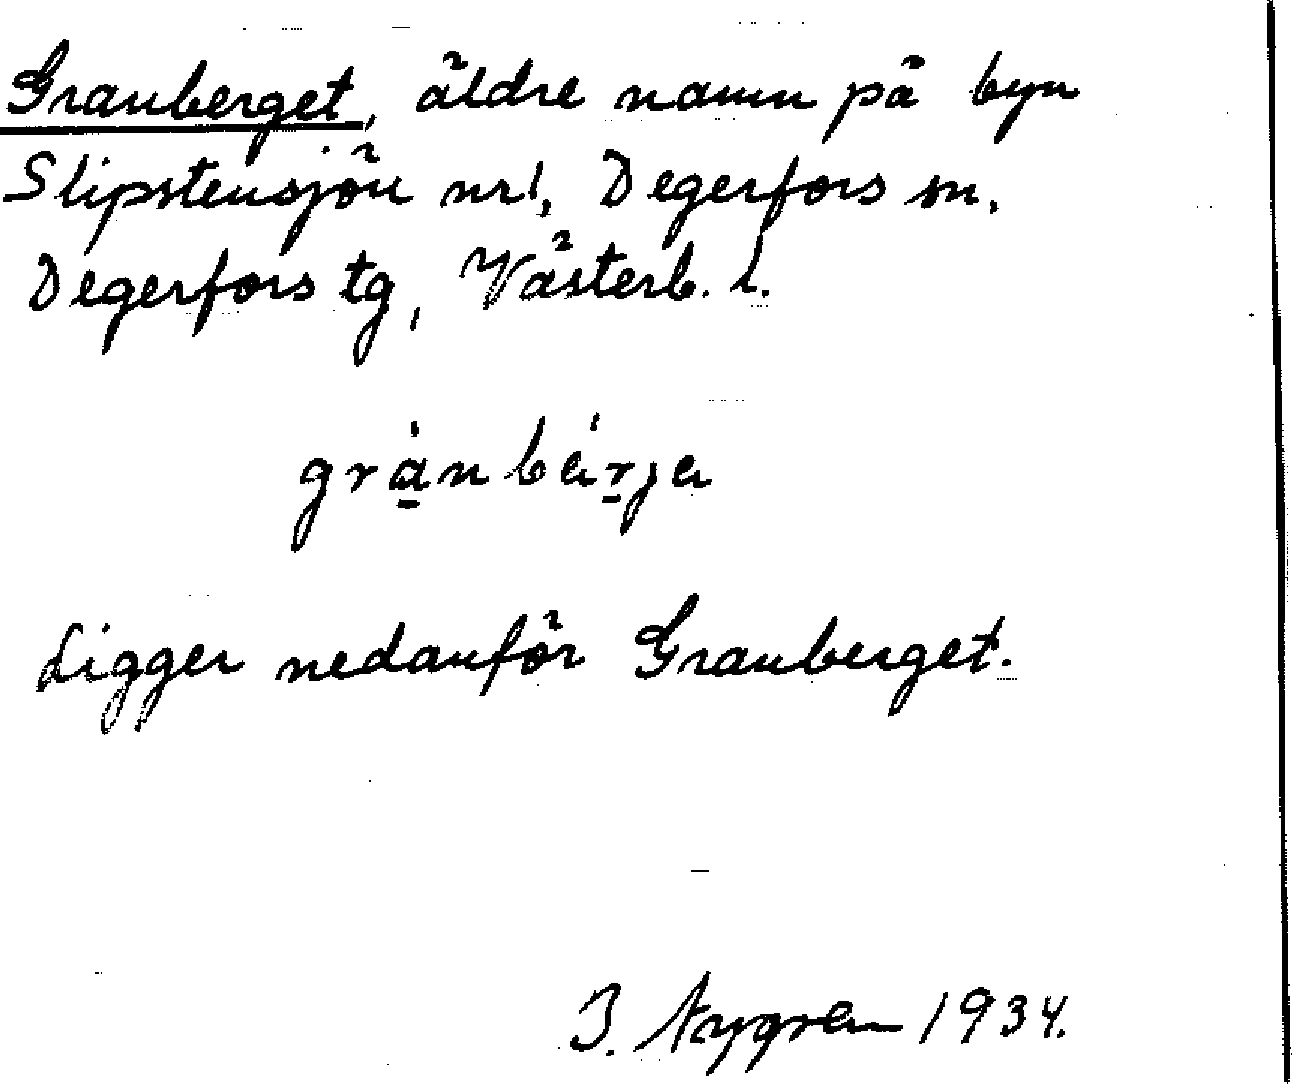 Granberget, äldre namn på byn
Slipstensjön nr 1, Degerfors sn.
Degerfors tg, Västerb. l.
grànbä́rja
Ligger nedanför Granberget.
J. Nygren 1934.